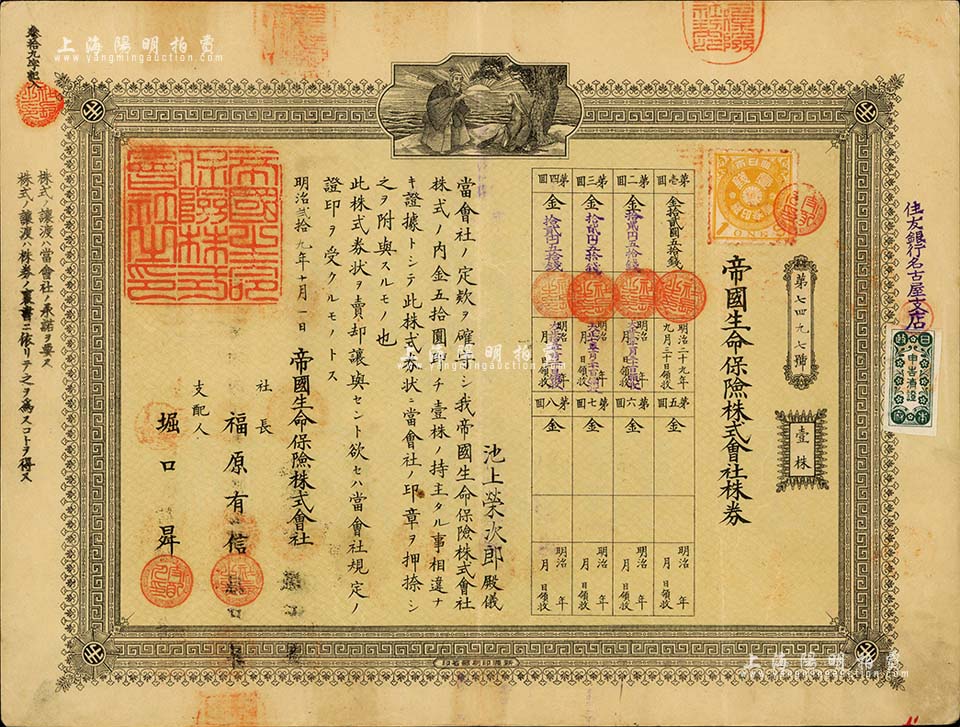 帝國生命保險株式會社株券
第七四九七號
壹株
第壹回
金拾貳圓五拾錢
明治二十九年九月二十日領收
第二回
金拾貳円五拾錢
第三回
金拾貳円五拾錢
第四回
金拾貳円五拾錢
第五回
金
明治 年 月 日領收
第六回
金
明治 年 月 日領收
第七回
金
明治 年 月 日領收
第八回
金
明治 年 月 日領收
池上榮次郎殿儀
當會社ノ定欵ヲ確守シ我帝國生命保險株式會社
株式ノ内金五拾圓卽チ壹株ノ持主タル事相違ナ
キ證據トシテ此株式券狀ニ當會社ノ印章ヲ押捺シ
之ヲ附與スルモノ也
此株式券狀ヲ賣却讓與セント欲セハ當會社規定ノ
證印ヲ受クルモノトス
明治貳拾九年十月一日
帝國生命保險株式會社
社長
福原有信
支配人
堀口昇
帝國生命保險株式會社之印
株式ノ讓渡ハ當會社ノ承諾ヲ要ス
株式ノ讓渡ハ株券ノ裏書ニ依リテ之ヲ爲スコトヲ得ス
参拾九字記入
住友銀行名古屋支店
申告濟證
上海陽明拍賣
www.yangmingauction.com
上海陽明拍賣
www.yangmingauction.com
上海陽明拍賣
www.yangmingauction.com
上海陽明拍賣
www.yangmingauction.com
上海陽明拍賣
www.yangmingauction.com